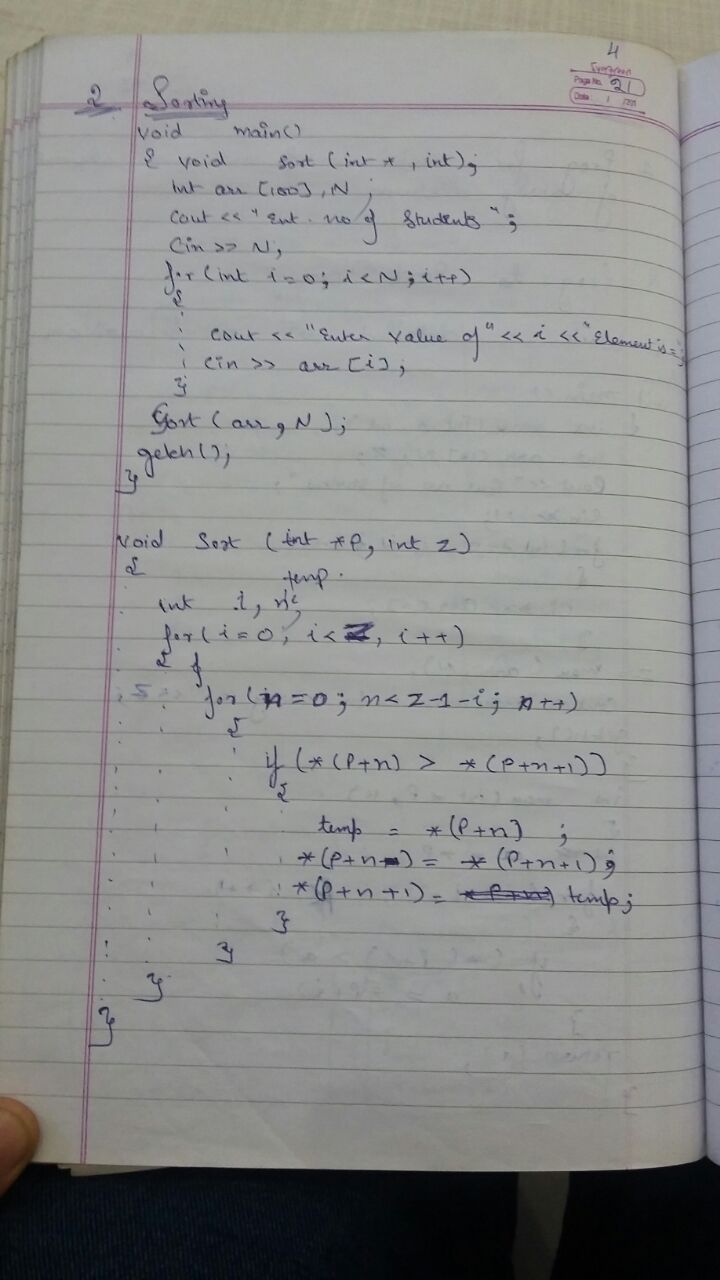 4
Evergreen
Page No. 21
Date: / /201
2 Sorting
void main()
{ void sort (int *, int);
int arr [100], N ;
cout << "Ent. no of Students" ;
Cin >> N;
for (int i=0; i<N; i++)
{
cout << "Enter value of" << i << "Element is =";
Cin >> arr [i];
}
Sort (arr, N);
getch();
}
void Sort (int *P, int Z)
{
temp.
int i, n;
for (i=0; i<Z, i++)
{
for (n=0; n<Z-1-i; n++)
{
if (*(P+n) > *(P+n+1))
{
temp = *(P+n) ;
*(P+n) = *(P+n+1);
*(P+n+1) = temp;
}
}
}
}